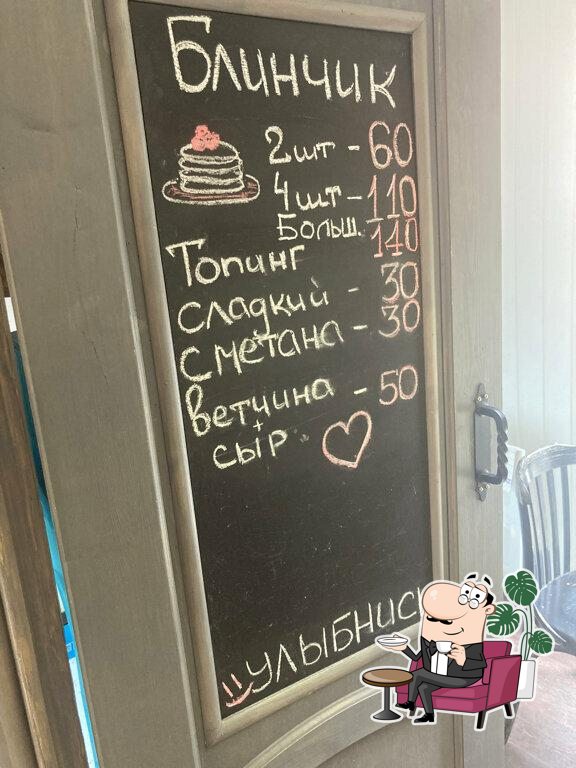 Блинчик
2шт - 60
4шт - 110
Больш. 140
Топинг
сладкий - 30
сметана - 30
ветчина - 50
+
сыр
улыбнись